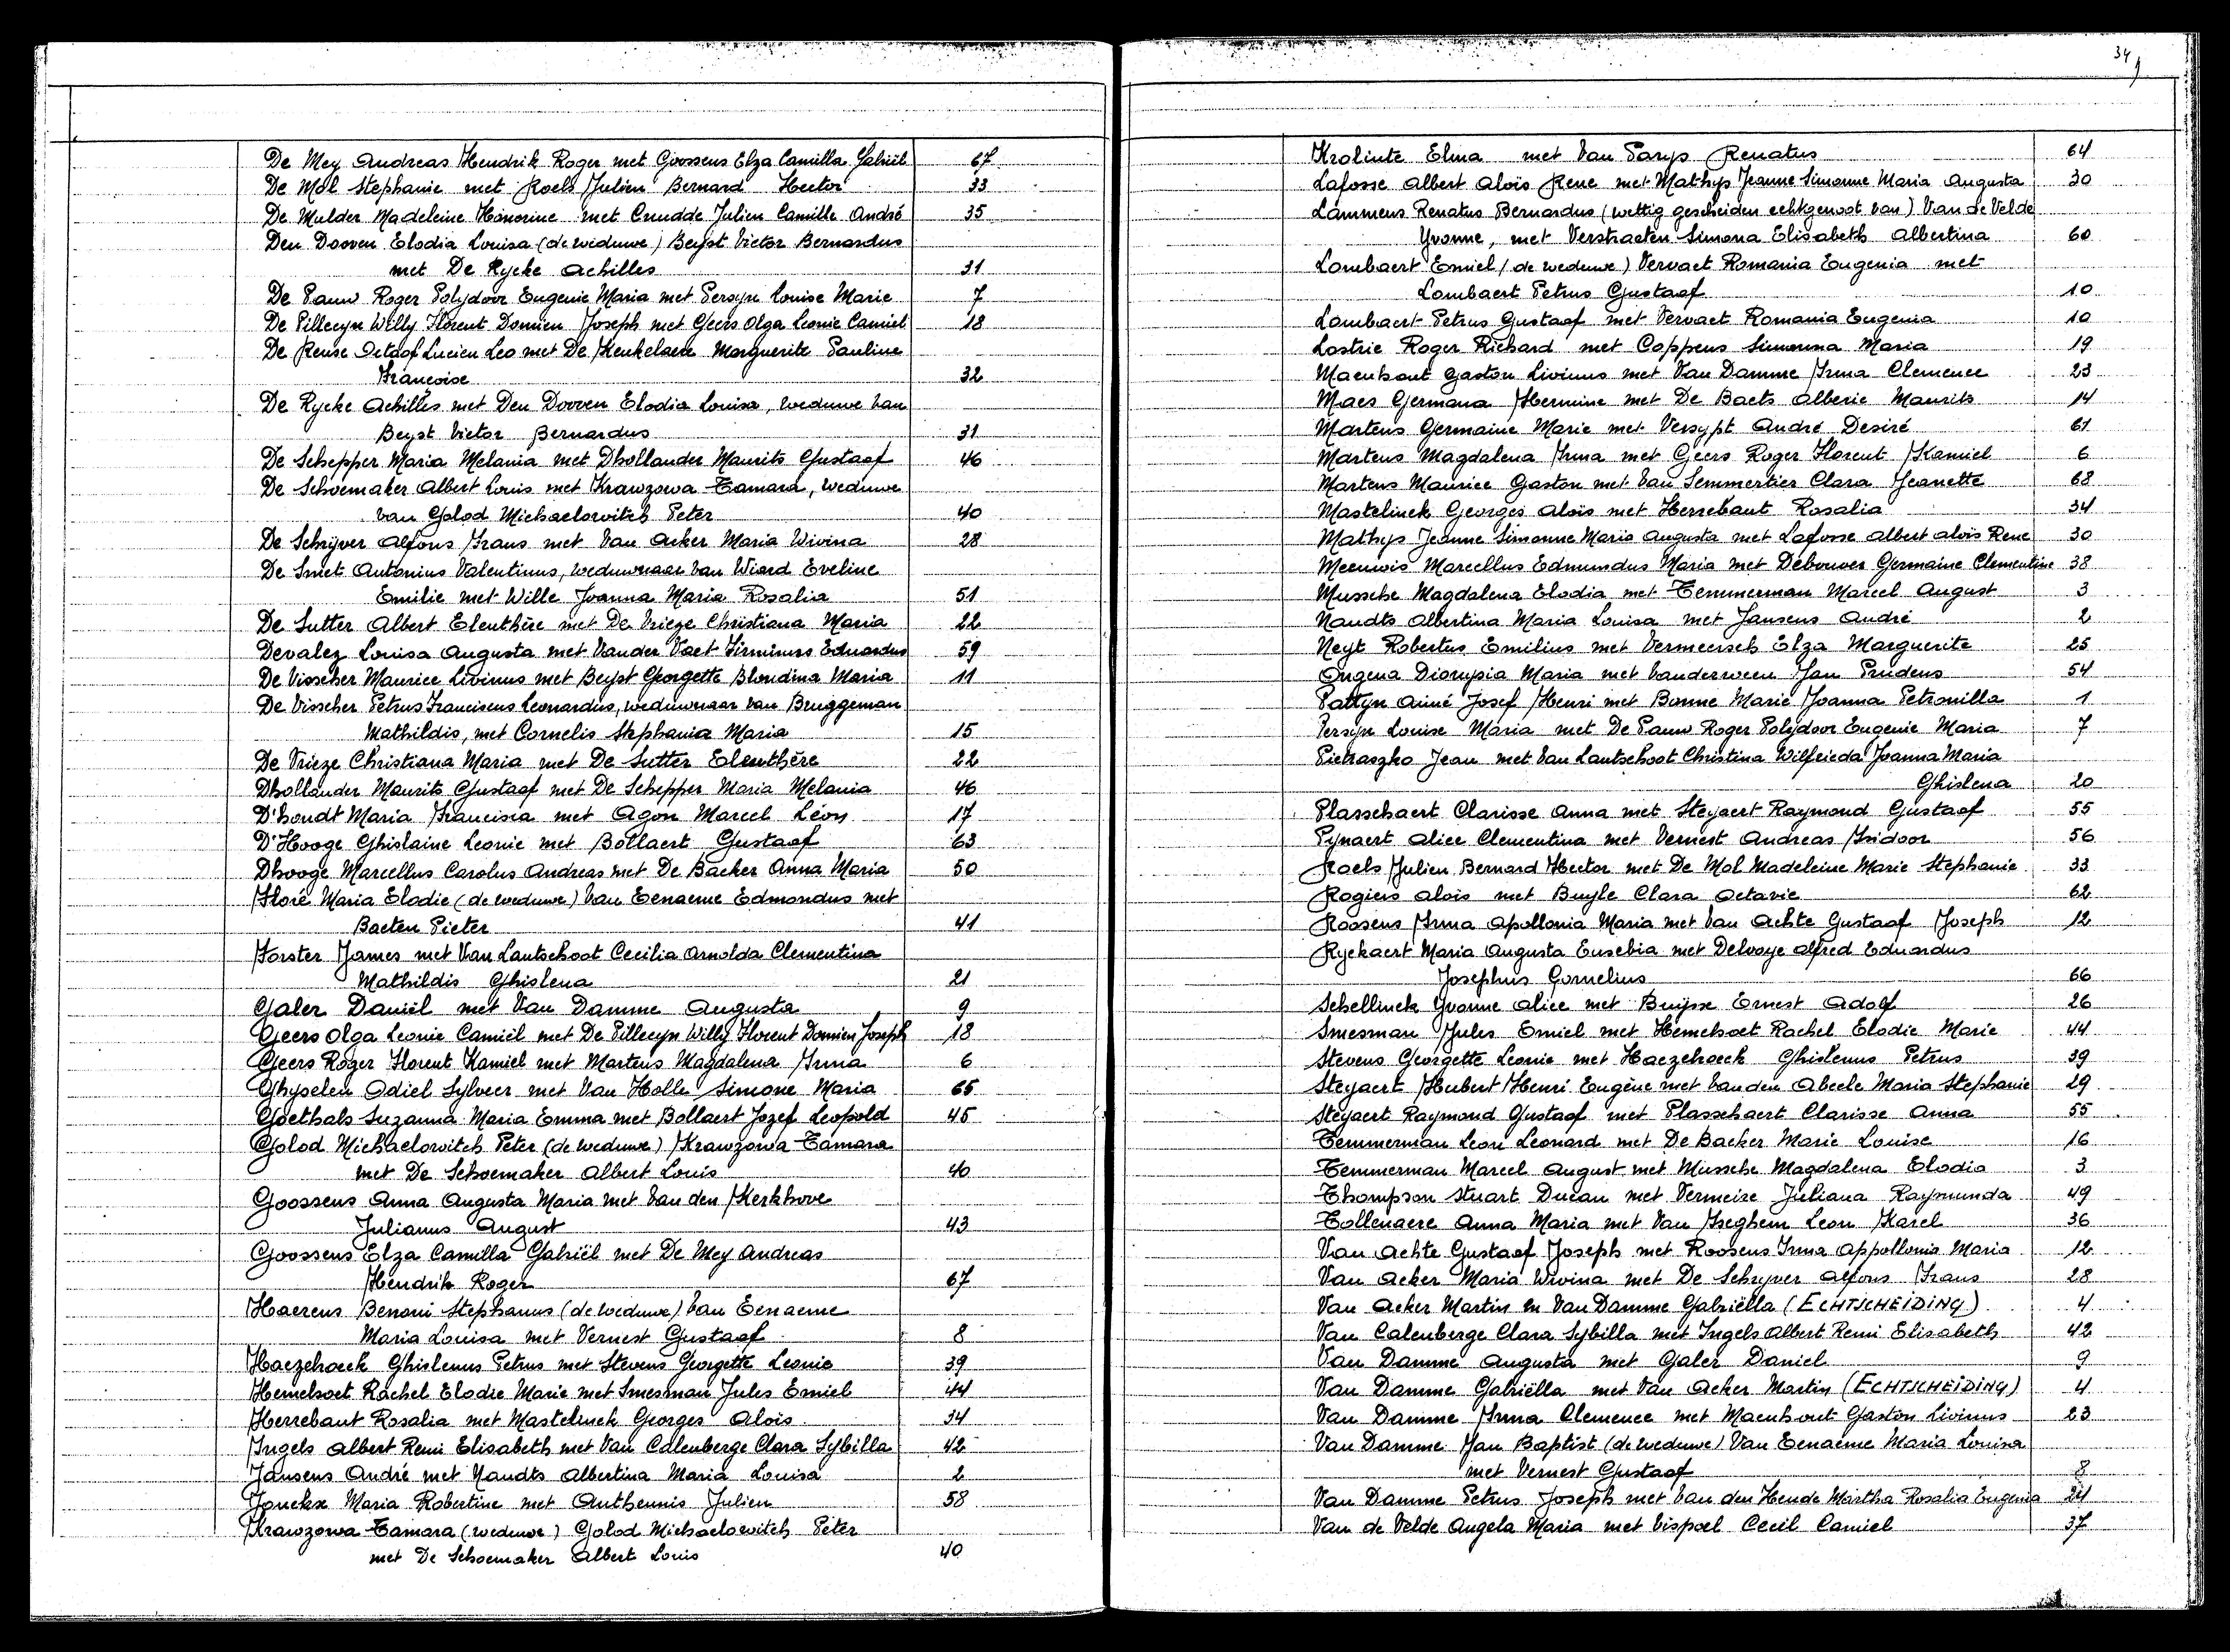 34
De Mey Andreas Hendrik Roger met Goossens Elza Camilla Gabriël 67
De Mol Stephanie met Roels Julien Bernard Hector 33
De Mulder Madeleine Honorine met Cnudde Julien Camille André 35
Den Dooven Elodia Louisa (de weduwe) Beyst Victor Bernardus
met De Rycke Achilles 31
De Pauw Roger Polydoor Eugenie Maria met Persyn Louise Marie 7
De Pillecyn Willy Florent Domien Joseph met Geers Olga Leonie Camiel 18
De Reuse Octaaf Lucien Leo met De Keukelaere Marguerite Pauline
Françoise 32
De Rycke Achilles met Den Dooven Elodia Louisa, weduwe van
Beyst Victor Bernardus 31
De Schepper Maria Melania met Dhollander Maurits Gustaaf 46
De Schoemaker Albert Louis met Krawzowa Tamara, weduwe
van Golod Michaelowitch Peter 40
De Schrijver Alfons Frans met Van Acker Maria Wivina 28
De Smet Antonius Valentinus, weduwnaar van Wiard Eveline
Emilie met Wille Joanna Maria Rosalia 51
De Sutter Albert Eleuthère met De Vrieze Christiana Maria 22
Devalez Louisa Augusta met Vander Vaet Firminus Eduardus 59
De Visscher Maurice Livinus met Beyst Georgette Blondina Maria 11
De Visscher Petrus Franciscus Leonardus, weduwnaar van Bruggeman
Mathildis, met Cornelis Stephania Maria 15
De Vrieze Christiana Maria met De Sutter Eleuthère 22
Dhollander Maurits Gustaaf met De Schepper Maria Melania 46
D'hondt Maria Francisca met Agon Marcel Léon 17
D'Hooge Ghislaine Leonie met Bollaert Gustaaf 63
Dhooge Marcellus Carolus Andreas met De Backer Anna Maria 50
Floré Maria Elodie (de weduwe) Van Eenaeme Edmondus met
Baeten Pieter 41
Forster James met Van Lantschoot Cecilia Arnolda Clementina
Mathildis Ghislena 21
Galer Daniël met Van Damme Augusta 9
Geers Olga Leonie Camiël met De Pillecyn Willy Florent Domien Joseph 18
Geers Roger Florent Kamiel met Martens Magdalena Irma 6
Ghyselen Odiel Sylveer met Van Holle Simone Maria 65
Goethals Suzanna Maria Emma met Bollaert Jozef Leopold 45
Golod Michaelowitch Peter (de weduwe) Krawzowa Tamara
met De Schoemaker Albert Louis 40
Goossens Anna Augusta Maria met Van den Kerkhove
Julianus August 43
Goossens Elza Camilla Gabriël met De Mey Andreas
Hendrik Roger 67
Haerens Benoni Stephanus (de weduwe) Van Eenaeme
Maria Louisa met Vernest Gustaaf 8
Haezebroeck Ghislenus Petrus met Stevens Georgette Leonie 39
Hemelsoet Rachel Elodie Marie met Smesman Jules Emiel 44
Herrebaut Rosalia met Mastelinck Georges Alois 34
Ingels Albert Remi Elisabeth met Van Calenberge Clara Sybilla 42
Jansens André met Naudts Albertina Maria Louisa 2
Jonckx Maria Robertine met Antheunis Julien 58
Krawzowa Tamara (weduwe) Golod Michaelowitch Peter
met De Schoemaker Albert Louis 40
Krolinte Elma met Van Parys Renatus 64
Lafosse Albert Aloïs Rene met Mathys Jeanne Simonne Maria Augusta 30
Lammens Renatus Bernardus (wettig gescheiden echtgenoot van) Van de Velde
Yvonne, met Verstraeten Simona Elisabeth Albertina 60
Lombaert Emiel (de weduwe) Vervaet Romania Eugenia met
Lombaert Petrus Gustaaf 10
Lombaert Petrus Gustaaf met Vervaet Romania Eugenia 10
Lostrie Roger Richard met Coppens Simonna Maria 19
Maenhout Gaston Livinus met Van Damme Irma Clemence 23
Maes Germana Hermine met De Baets Alberic Maurits 14
Martens Germaine Marie met Versypt André Desiré 61
Martens Magdalena Irma met Geers Roger Florent Kamiel 6
Martens Maurice Gaston met Van Semmertier Clara Jeanette 68
Mastelinck Georges Alois met Herrebaut Rosalia 34
Mathys Jeanne Simonne Maria Augusta met Lafosse Albert Aloïs Rene 30
Meeuwis Marcellus Edmundus Maria met Debouver Germaine Clementine 38
Mussche Magdalena Elodia met Temmerman Marcel August 3
Naudts Albertina Maria Louisa met Jansens André 2
Neyt Robertus Emilius met Vermeersch Elza Marguerite 25
Ongena Dionysia Maria met Vanderween Jan Prudens 54
Pattyn Aimé Josef Henri met Bonne Marie Joanna Petronilla 1
Persyn Louise Maria met De Pauw Roger Polydoor Eugenie Maria 7
Pietraszko Jean met Van Lantschoot Christina Wilfrieda Joanna Maria
Ghislena 20
Plasschaert Clarisse Anna met Steyaert Raymond Gustaaf 55
Pynaert Alice Clementina met Vernest Andreas Isidoor 56
Roels Julien Bernard Hector met De Mol Madeleine Marie Stephanie 33
Rogiers Alois met Buyle Clara Octavie 62
Roosens Irma Apollonia Maria met Van Achte Gustaaf Joseph 12
Ryckaert Maria Augusta Eusebia met Delvoye Alfred Eduardus
Josephus Cornelius 66
Schellinck Yvonne Alice met Buysse Ernest Adolf 26
Smesman Jules Emiel met Hemelsoet Rachel Elodie Marie 44
Stevens Georgette Leonie met Haezebroeck Ghislenus Petrus 39
Steyaert Hubert Henri Eugène met Van den Abeele Maria Stephanie 29
Steyaert Raymond Gustaaf met Plasschaert Clarisse Anna 55
Temmerman Leon Leonard met De Backer Marie Louise 16
Temmerman Marcel August met Mussche Magdalena Elodia 3
Thompson Stuart Ducan met Vermeire Juliana Raymunda 49
Tollenaere Anna Maria met Van Iseghem Leon Karel 36
Van Achte Gustaaf Joseph met Roosens Irma Appollonia Maria 12
Van Acker Maria Wivina met De Schryver Alfons Frans 28
Van Acker Martin en Van Damme Gabriëlla (ECHTSCHEIDING) 4
Van Calenberge Clara Sybilla met Ingels Albert Remi Elisabeth 42
Van Damme Augusta met Galer Daniel 9
Van Damme Gabriëlla met Van Acker Martin (ECHTSCHEIDING) 4
Van Damme Irma Clemence met Maenhout Gaston Livinus 23
Van Damme Jan Baptist (de weduwe) Van Eenaeme Maria Louisa
met Vernest Gustaaf 8
Van Damme Petrus Joseph met Van den Hende Martha Rosalia Eugenia 24
Van de Velde Angela Maria met Vispoel Cecil Camiel 37